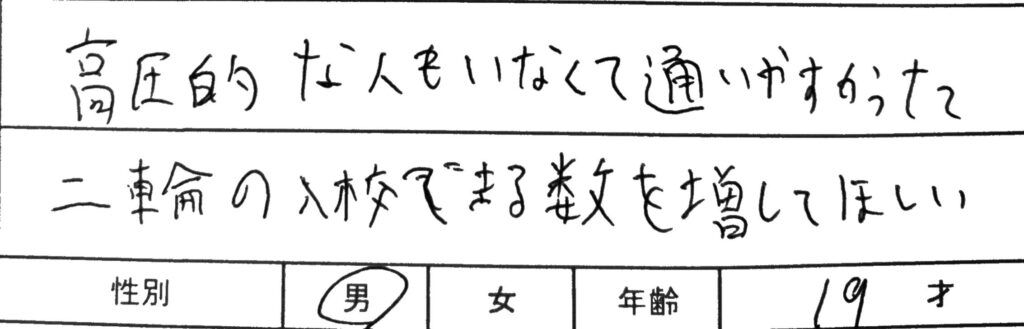 高圧的な人もいなくて通いやすかった
二輪の入校できる数を増してほしい
性別 男 女 年齢 19才